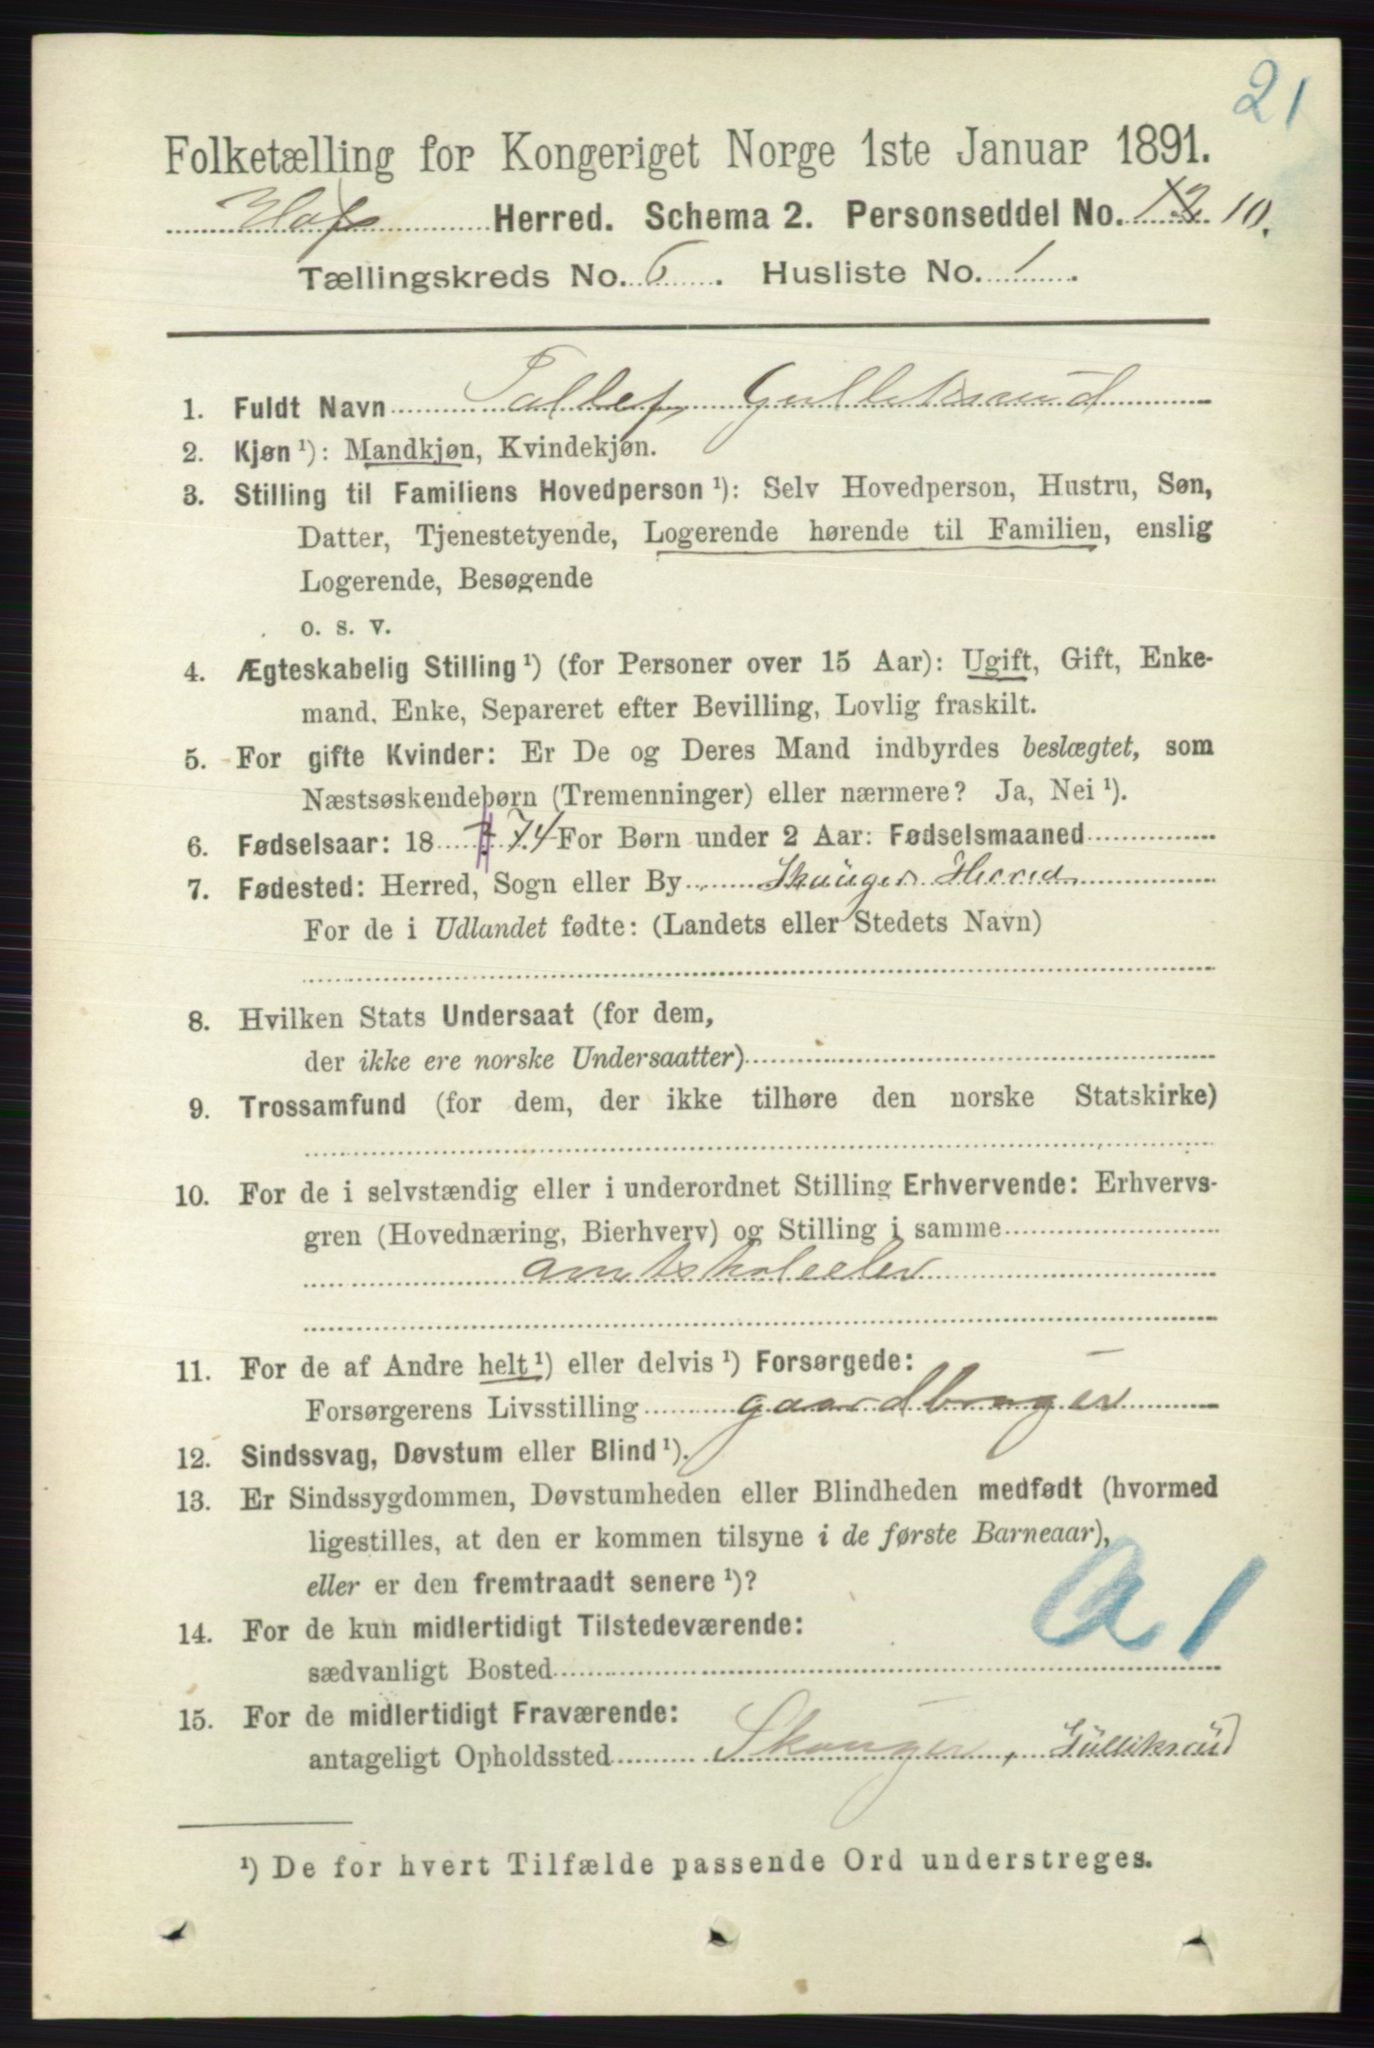 21
Folketælling for Kongeriget Norge 1ste Januar 1891.
Hof Herred. Schema 2. Personseddel No. 12 10.
Tællingskreds No. 6. Husliste No. 1.
1. Fuldt Navn Tollef Gulliksrud
2. Kjøn ¹): Mandkjøn, Kvindekjøn.
3. Stilling til Familiens Hovedperson ¹): Selv Hovedperson, Hustru, Søn,
Datter, Tjenestetyende, Logerende hørende til Familien, enslig
Logerende, Besøgende
o. s. v.
4. Ægteskabelig Stilling ¹) (for Personer over 15 Aar): Ugift, Gift, Enke-
mand, Enke, Separeret efter Bevilling, Lovlig fraskilt.
5. For gifte Kvinder: Er De og Deres Mand indbyrdes beslægtet, som
Næstsøskendebørn (Tremenninger) eller nærmere? Ja, Nei ¹).
6. Fødselsaar: 18 74 For Børn under 2 Aar: Fødselsmaaned
7. Fødested: Herred, Sogn eller By Skouger Herred
For de i Udlandet fødte: (Landets eller Stedets Navn)
8. Hvilken Stats Undersaat (for dem,
der ikke ere norske Undersaatter)
9. Trossamfund (for dem, der ikke tilhøre den norske Statskirke)
10. For de i selvstændig eller i underordnet Stilling Erhvervende: Erhvervs-
gren (Hovednæring, Bierhverv) og Stilling i samme
amtskoleelev
11. For de af Andre helt ¹) eller delvis ¹) Forsørgede:
Forsørgerens Livsstilling gaardbruger
12. Sindssvag, Døvstum eller Blind ¹).
13. Er Sindssygdommen, Døvstumheden eller Blindheden medfødt (hvormed
ligestilles, at den er kommen tilsyne i de første Barneaar),
eller er den fremtraadt senere ¹)?
A 1
14. For de kun midlertidigt Tilstedeværende:
sædvanligt Bosted
15. For de midlertidigt Fraværende:
antageligt Opholdssted Skouger, Gulliksrud
¹) De for hvert Tilfælde passende Ord understreges.